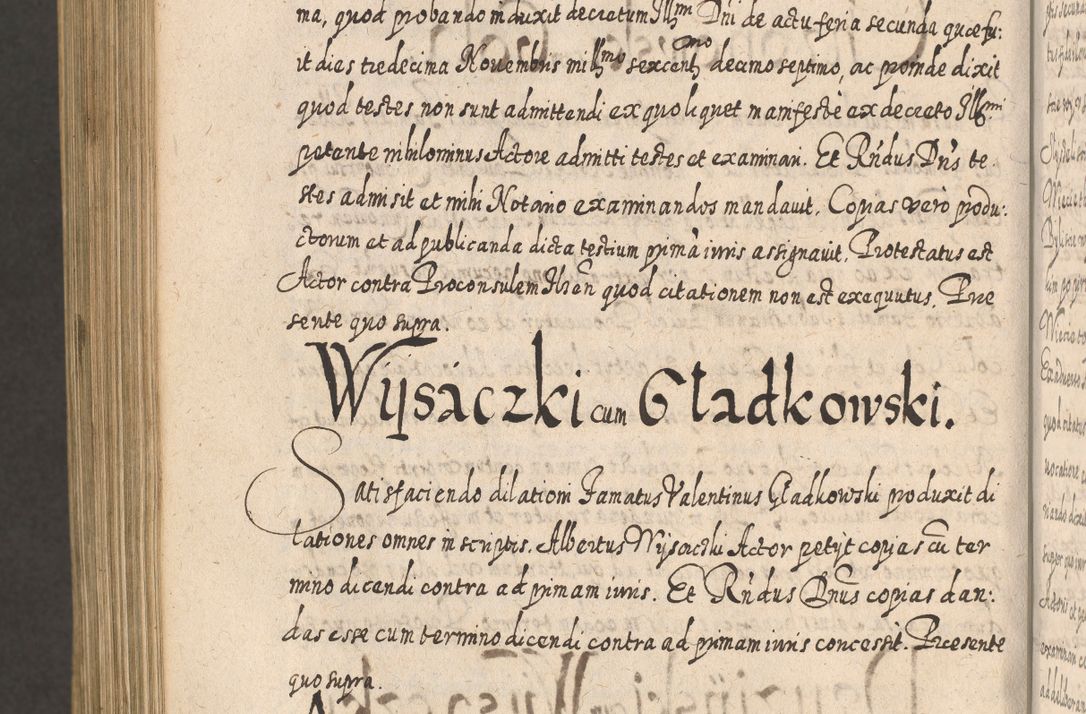 ma, quod probando induxit decretum Illmi Dni de actu feria secunda quæ fu:
it dies tredecima Novembris millmo sexcentmo decimo septimo, ac proinde dixit
quod testes non sunt admittendi ex quo liquet manifestè ex decreto Illmi
petente nihilominus Actore admitti testes et examinari. Et Rndus Dns te
stes admisit et mihi Notario examinandos mandavit. Copias verò produ:
ctorum et ad publicanda dicta testium primã iuris assignavit. Protestatus est
Actor contra Proconsulem Ilzen quod citationem non est exequutus. Præ
sente quo supra.
Wysaczki cum Gladkowski.
Satisfaciendo dilationi Famatus Valentinus Gladkowski produxit di
lationes omnes in scriptis. Albertus Wysaczki Actor petijt copias cũ ter
mino dicendi contra ad primam iuris. Et Rndus Dnus copias dan:
das esse cum termino dicendi contra ad primam iuris concessit. Præsente
quo supra.